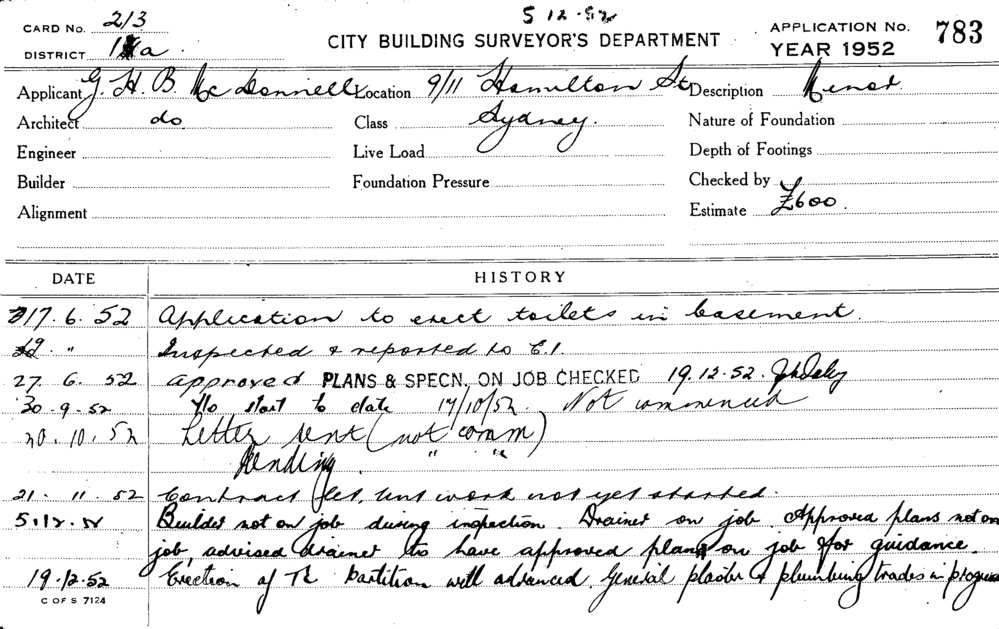 5 12.52
CARD No. 213
DISTRICT 1a.
CITY BUILDING SURVEYOR'S DEPARTMENT
APPLICATION No. 783
YEAR 1952
Applicant G. H. B. McDonnell Location 9/11 Hamilton St. Description Minor.
Architect do Class Sydney. Nature of Foundation
Engineer Live Load Depth of Footings
Builder Foundation Pressure Checked by
Alignment Estimate £600.
DATE HISTORY
17.6.52 Application to erect toilets in basement.
19. " Inspected & reported to E.I.
27.6.52 Approved PLANS & SPECN. ON JOB CHECKED 19.12.52.
30.9.52 No start to date 17/10/52. Not commenced
20.10.52 Letter sent (not comm)
Pending. " "
21.11.52 Contract let, but work not yet started.
5.12.52 Builder not on job during inspection. Drainer on job. Approved plans not on
job, advised drainer to have approved plans on job for guidance.
19.12.52 Erection of TC partition well advanced. General plaster & plumbing trades in progress
C OF S 7124